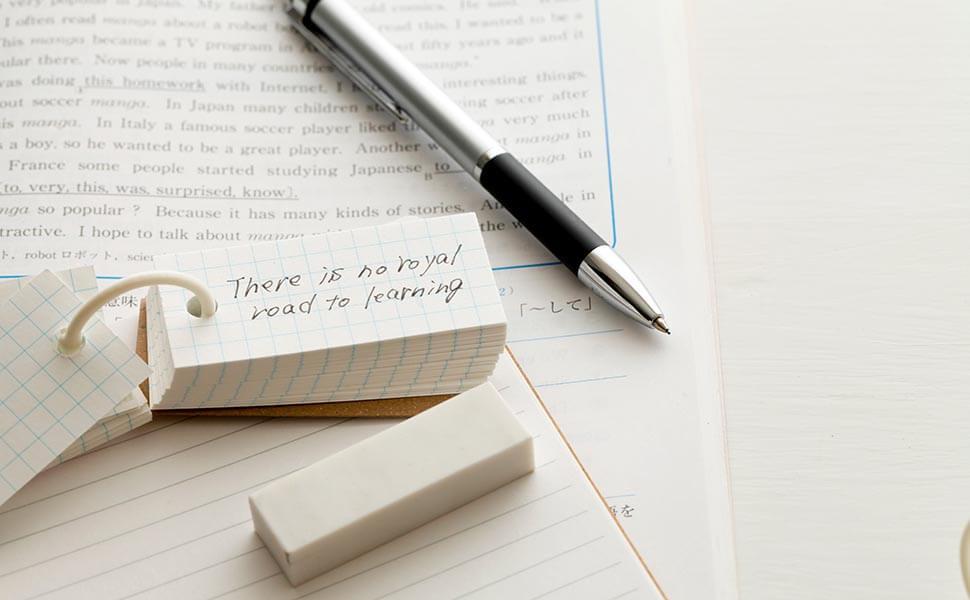 very popular in Japan. My father
I often read manga about a robot
This manga became a TV program in fifty years ago and it
ular there. Now people in many countries manga."
was doing this homework with Internet, I interesting things.
out soccer manga. In Japan many children soccer after
is manga. In Italy a famous soccer player liked manga very much
s a boy, so he wanted to be a great player. Another manga in
France some people started studying Japanese B to in
[to, very, this, was, surprised, know].
nga so popular ? Because it has many kinds of stories. in
tractive. I hope to talk about manga the w
ト, robot ロボット,
意味
There is no royal
road to learning
「〜して」
を